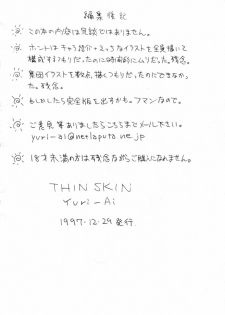 編集後記
この本の内容は冗談ではありません。
ホントはキャラ設定+えっちなイラストを全員描いて
構成するつもりだったのに時間的にムリだった。残念。
裏面イラストを数点、描くつもりだったのだができなかっ
た。残念。
もしかしたら完全版も出すかも。フマンなので。
ご意見等ありましたらこちらまでメール下さい。
yuri-ai@netlaputa.ne.jp
18才未満の方は残念ながらご購入になれません。
THIN SKIN
Yuri-Ai
1997.12.29 発行